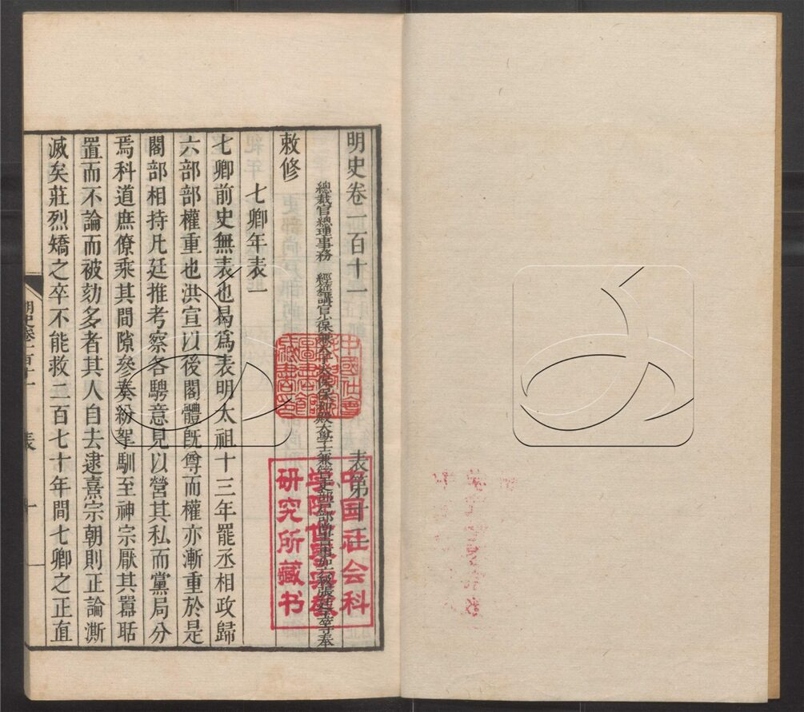 明史卷一百十一
表第十二
總裁官總理事務 經筵講官少保兼太子太保保和殿大學士兼管吏部戶部尚書事加六級張廷玉等奉
敕修
七卿年表一
七卿前史無表也曷爲表明太祖十三年罷丞相政歸
六部部權重也洪宣以後閣體既尊而權亦漸重於是
閣部相持凡廷推考察各騁意見以營其私而黨局分
焉科道庶僚乘其間隙參奏紛拏馴至神宗厭其囂聒
置而不論而被劾多者其人自去逮熹宗朝則正論澌
滅矣莊烈矯之卒不能救二百七十年間七卿之正直
明史卷一百十一 表 十
中國社會
圖書館
藏書
中国社会科
学院
研究所藏书